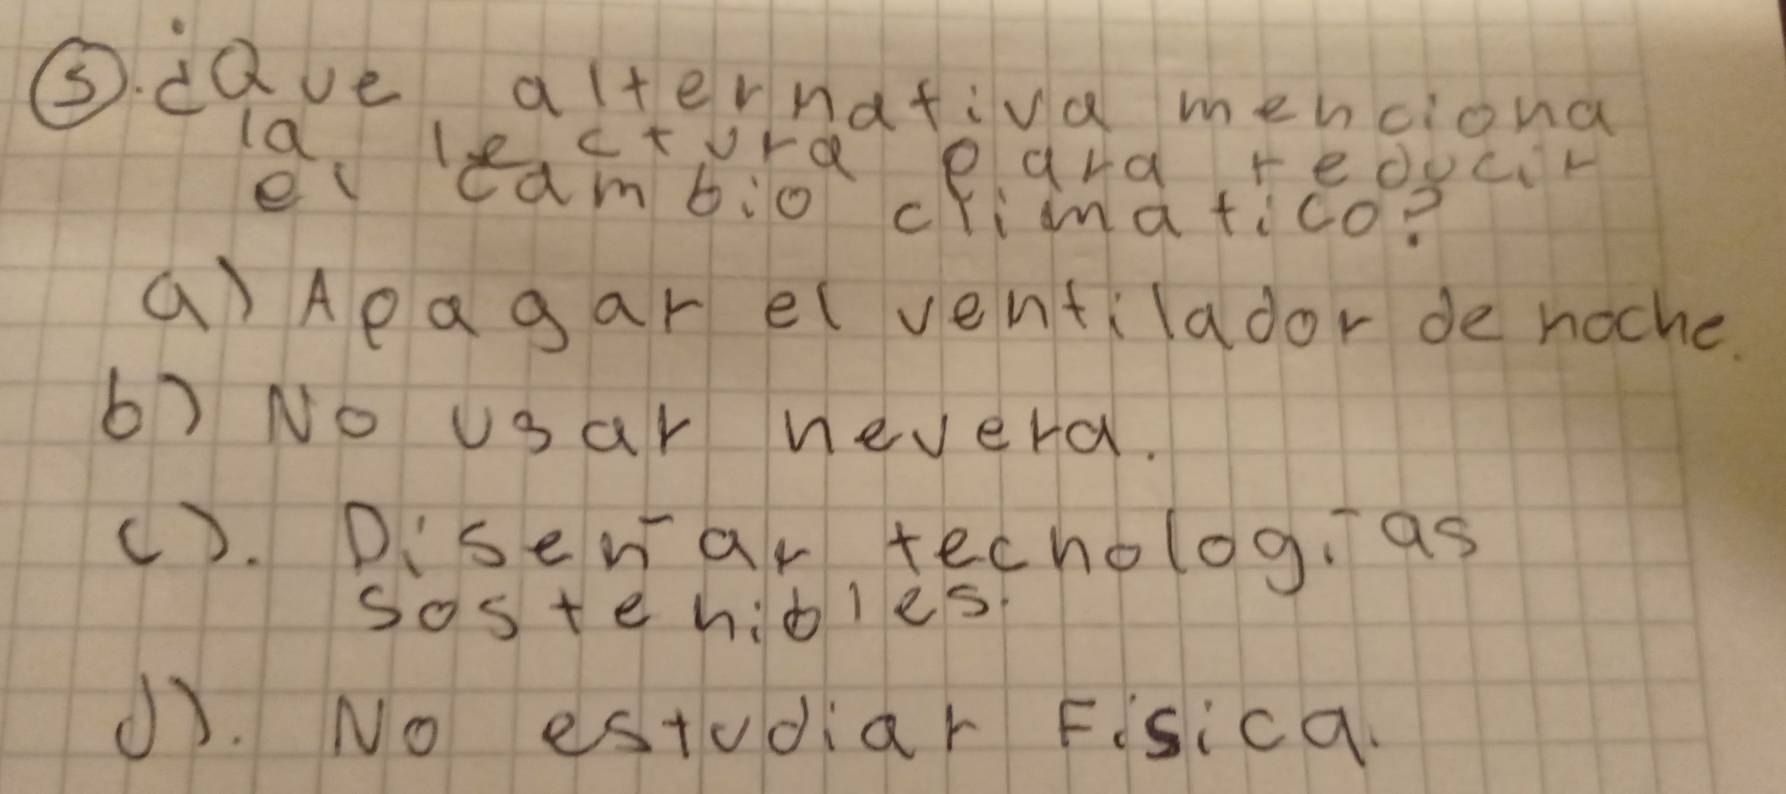 5. ¿Que alternativa menciona
la lectura para reducir
el cambio climatico?
a) Apagar el ventilador de noche.
b) No usar nevera.
c). Diseñar tecnologías
sostenibles.
d). No estudiar Física.